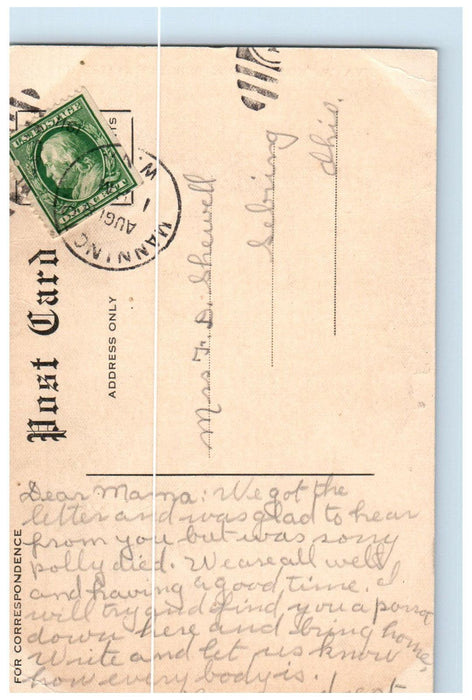 Post Card
ADDRESS ONLY
FOR CORRESPONDENCE
U.S. POSTAGE
MANNING
AUG
1
Mrs F. D. Shewell
Sebring
Ohio.
Dear Mama: We got the
letter and was glad to hear
from you but was sorry
polly died. We are all well
and having a good time. I
will try and find you a parrot
down here and bring home,
Write and let us know
how every body is.